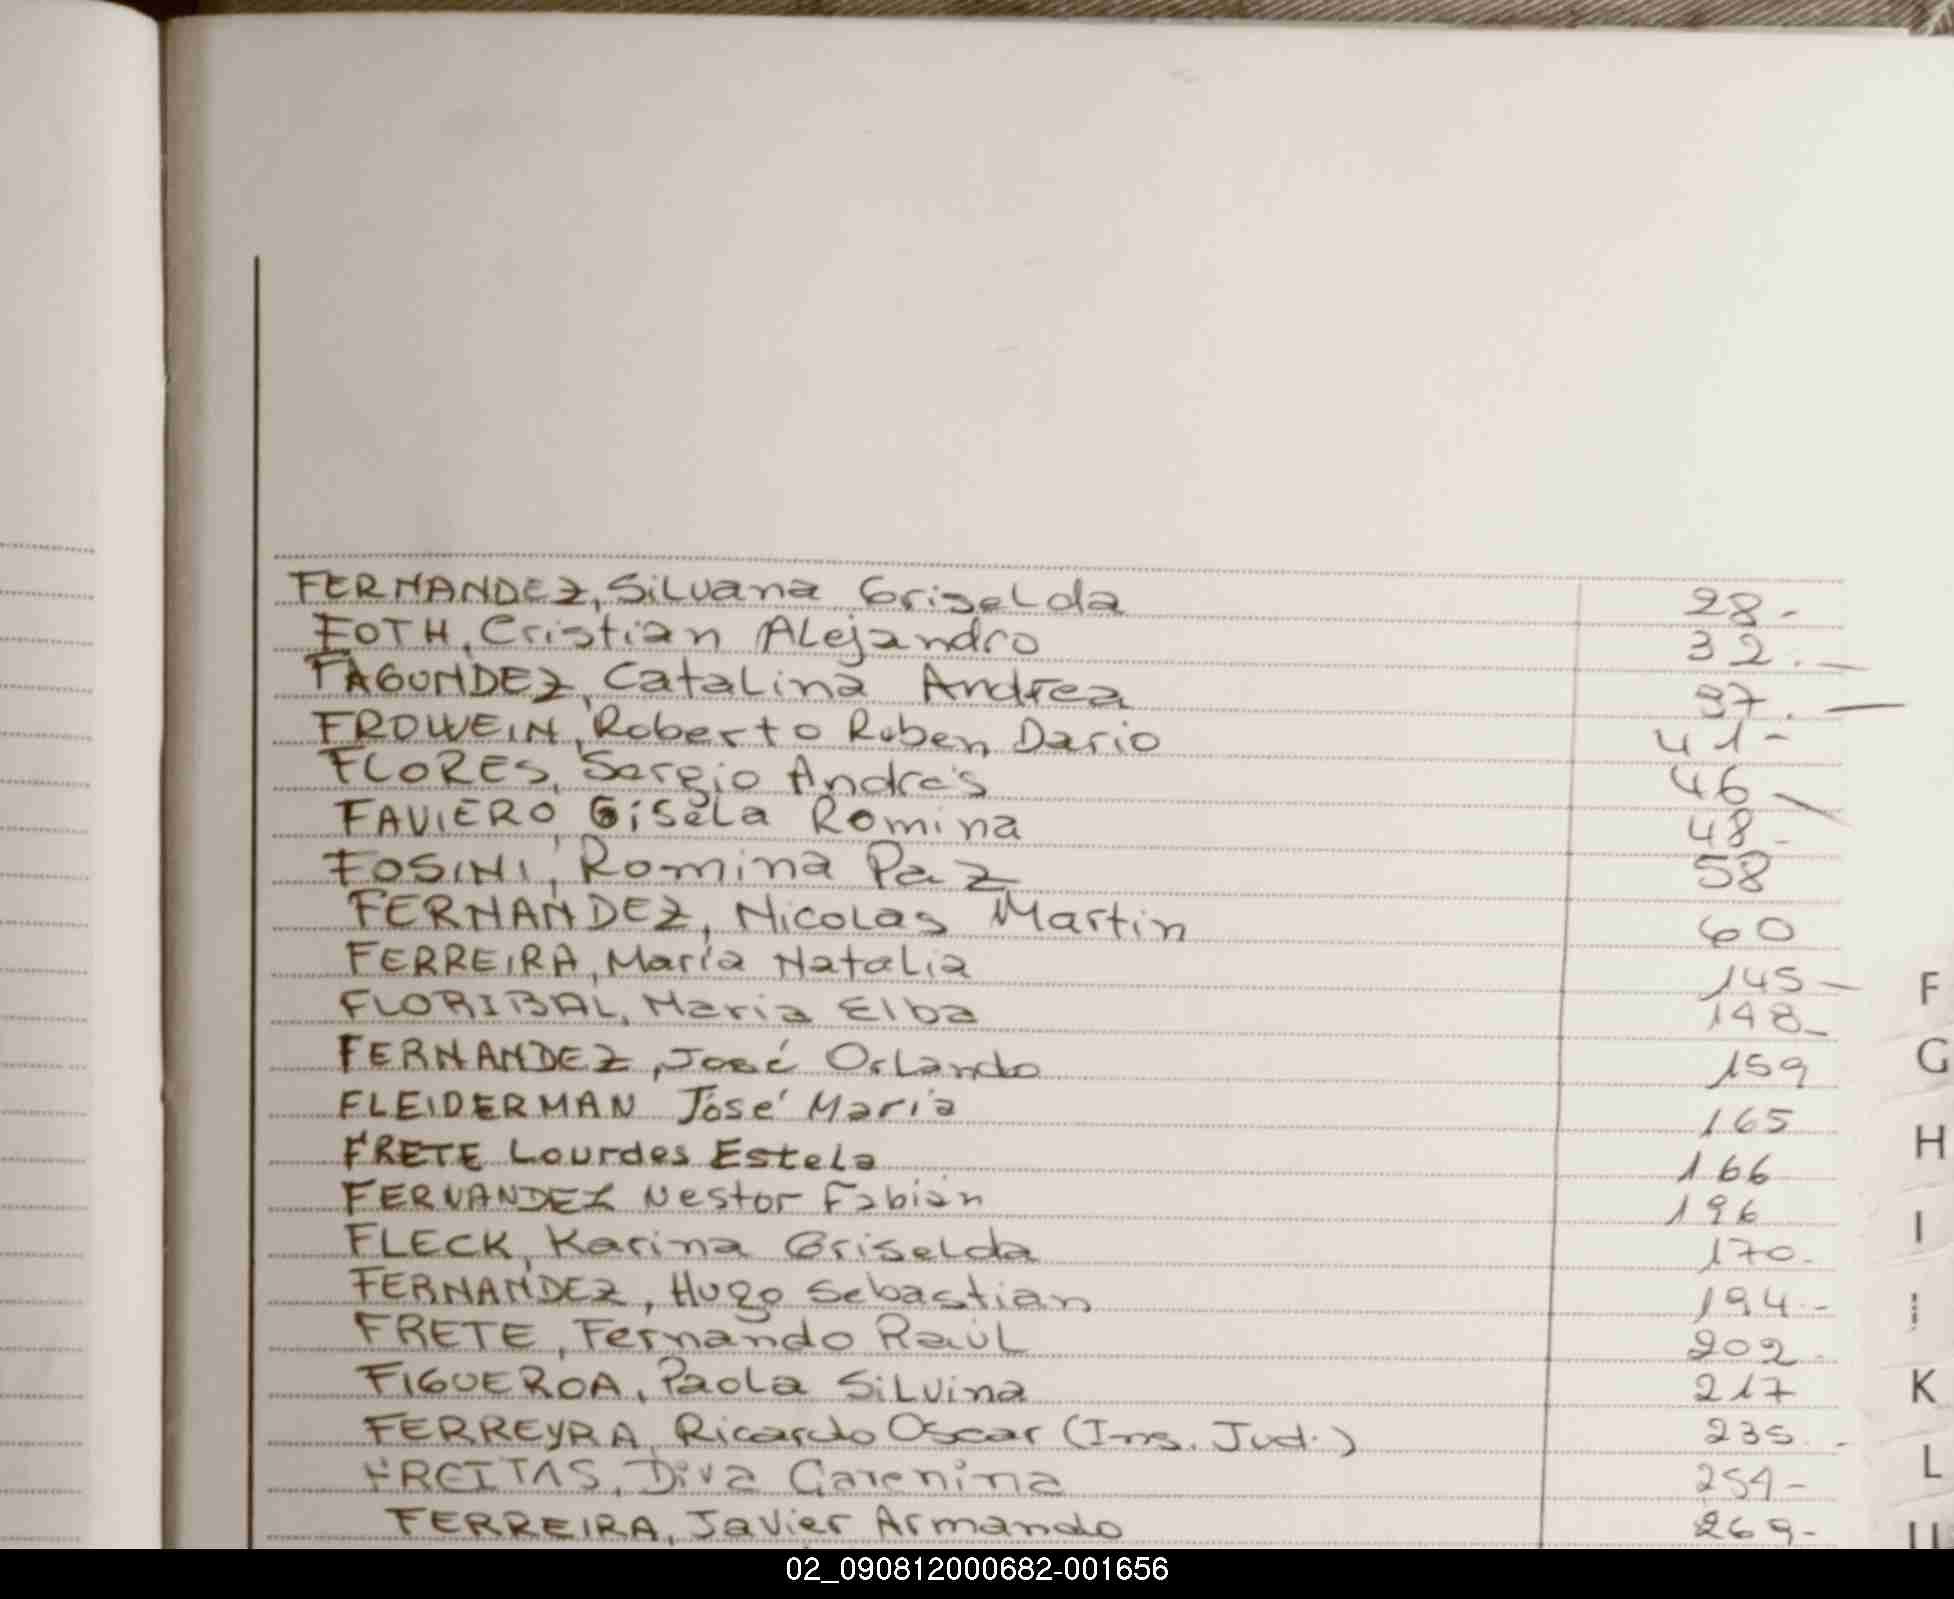 FERNANDEZ, Silvana Griselda 28.-
FOTH, Cristian Alejandro 32.-
FAGUNDEZ, Catalina Andrea 37.-
FROWEIN, Roberto Ruben Dario 41-
FLORES, Sergio Andrés 46-
FAVIERO, Gisela Romina 48-
FOSINI, Romina Paz 58
FERNANDEZ, Nicolas Martin 60
FERREIRA, María Natalia 145-
FLORIBAL, Maria Elba 148-
FERNANDEZ, José Orlando 159
FLEIDERMAN José Maria 165
FRETE Lourdes Estela 166
FERNANDEZ Nestor Fabián 196
FLECK, Karina Griselda 170.
FERNANDEZ, Hugo Sebastian 194.-
FRETE, Fernando Raúl 202.
FIGUEROA, Paola Silvina 217
FERREYRA, Ricardo Oscar (Ins. Jud.) 235.-
FREITAS, Diva Carenina 259-
FERREIRA, Javier Armando 269-
F
G
H
I
K
L
02_090812000682-001656